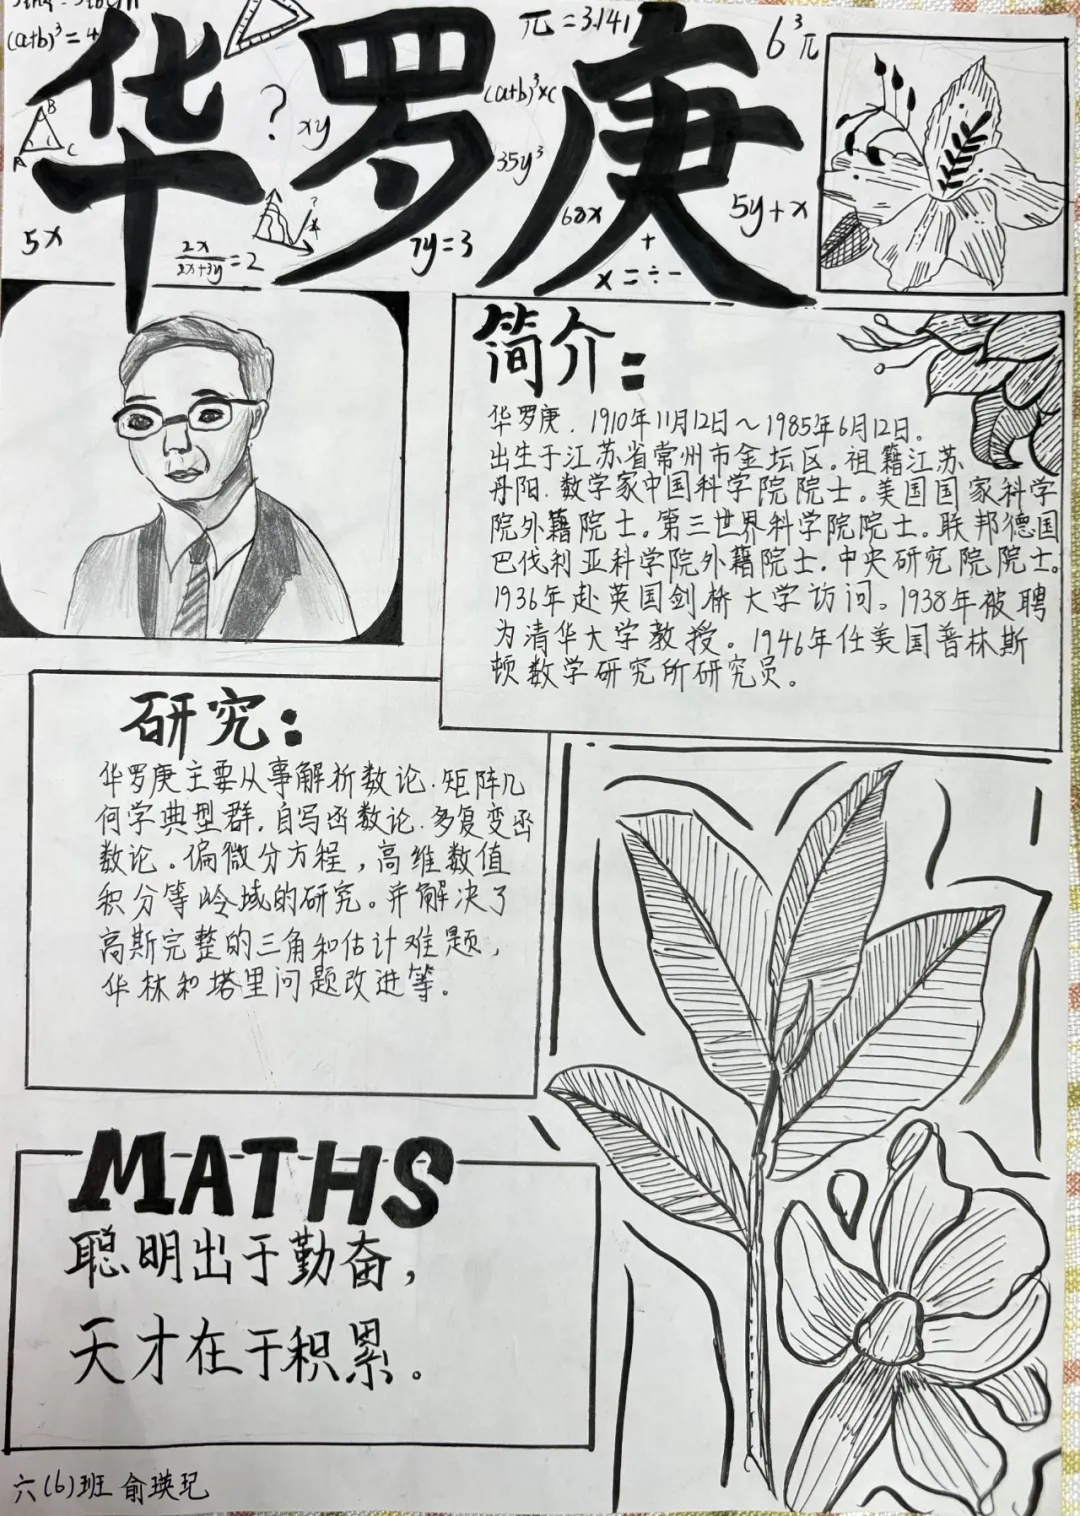 (a+b)³=4
π=3.141
6³π
华罗庚
B
A
C
?
xy
(a+b)³×c
35y³
5x
2x/2x+3y=2
7y=3
68x
+
x=÷-
5y+x
简介:
华罗庚.1910年11月12日~1985年6月12日。
出生于江苏省常州市金坛区。祖籍江苏
丹阳.数学家中国科学院院士。美国国家科学
院外籍院士。第三世界科学院院士。联邦德国
巴伐利亚科学院外籍院士.中央研究院院士。
1936年赴英国剑桥大学访问。1938年被聘
为清华大学教授。1946年任美国普林斯
顿数学研究所研究员。
研究:
华罗庚主要从事解析数论.矩阵几
何学典型群.自写函数论.多复变函
数论。偏微分方程,高维数值
积分等岭域的研究。并解决了
高斯完整的三角和估计难题,
华林和塔里问题改进等。
MATHS
聪明出于勤奋,
天才在于积累。
六(6)班 俞瑛玘